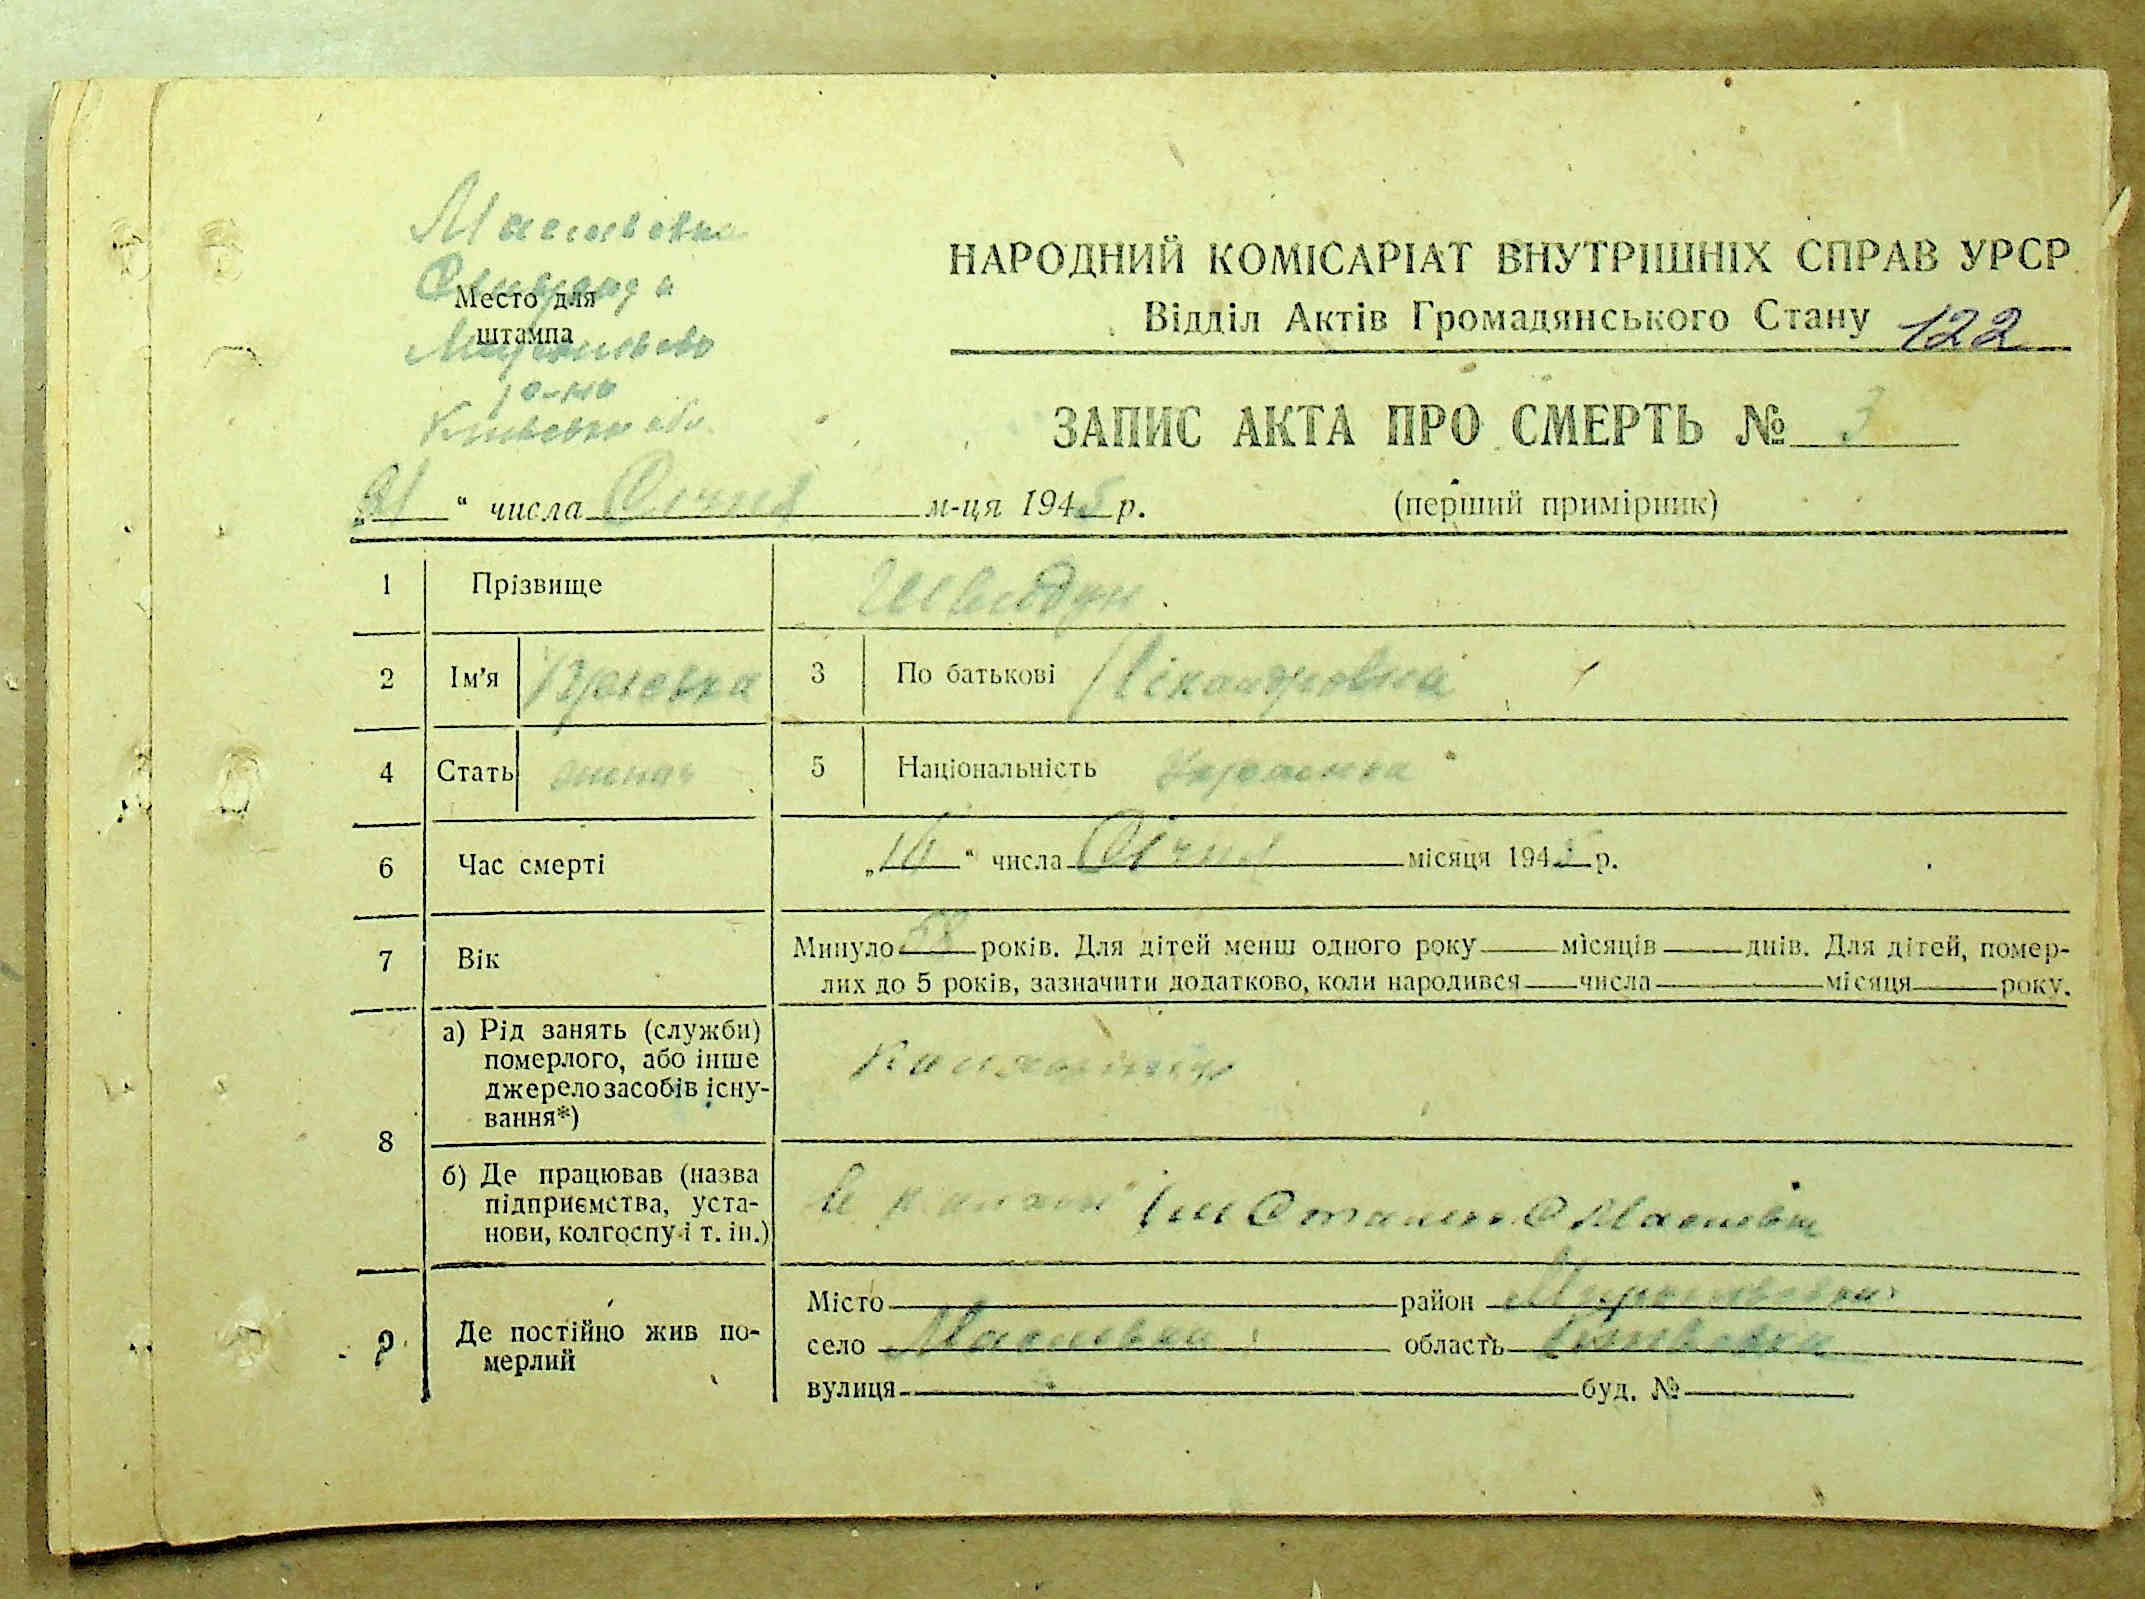 Маслівка
Место для
штампа
р-ну
НАРОДНИЙ КОМІСАРІАТ ВНУТРІШНІХ СПРАВ УРСР
Відділ Актів Громадянського Стану 122
ЗАПИС АКТА ПРО СМЕРТЬ № 3
(перший примірник)
„21“ числа Січня м-ця 1945 р.
1 Прізвище Швидун
2 Ім'я 3 По батькові Ніканоровна
4 Стать 5 Національність Українка
6 Час смерті „ “ числа Січня місяця 1945 р.
7 Вік Минуло 58 років. Для дітей менш одного року місяців днів. Для дітей, помер-
лих до 5 років, зазначити додатково, коли народився числа місяця року.
8 а) Рід занять (служби)
померлого, або інше
джерело засобів існу-
вання*)
б) Де працював (назва
підприємства, уста-
нови, колгоспу і т. ін.)
Ім Сталіна С Маслівка
9 Де постійно жив по-
мерлий
Місто район Миронівський
село Маслівка область Київська
вулиця буд. №